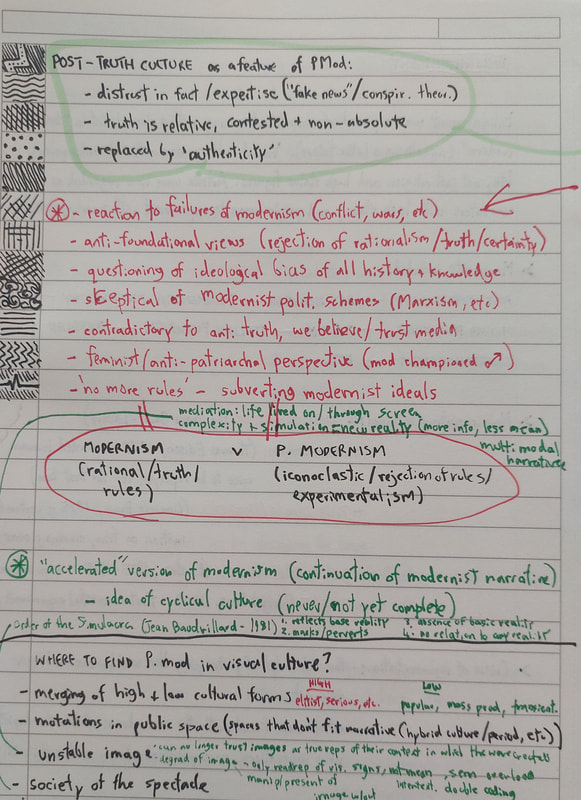 POST-TRUTH CULTURE as a feature of PMod:
- distrust in fact/expertise ("fake news"/conspir. theor.)
- truth is relative, contested + non-absolute
- replaced by 'authenticity'
* - reaction to failures of modernism (conflict, wars, etc)
- anti-foundational views (rejection of rationalism/truth/certainty)
- questioning of ideological bias of all history + knowledge
- skeptical of modernist polit. schemes (Marxism, etc)
- contradictory to anti truth, we believe/trust media
- feminist/anti-patriarchal perspective (mod championed ♂)
- 'no more rules' - subverting modernist ideals
mediation: life lived on/through screen
complexity + simulation = new reality (more info, less mean)
multimodal
narratives
MODERNISM v P. MODERNISM
(rational/truth/ (iconoclastic/rejection of rules/
rules) experimentalism)
* "accelerated" version of modernism (continuation of modernist narrative)
- idea of cyclical culture (never/not yet complete)
Order of the Simulacra (Jean Baudrillard - 1981) 1. reflects base reality 3. absence of basic reality
2. masks/perverts 4. no relation to any reality
WHERE TO FIND P. mod in visual culture?
HIGH LOW
- merging of high + low cultural forms elitist, serious, etc. popular, mass prod,
- mutations in public space (spaces that don't fit narrative (hybrid culture/period, etc.)
- unstable image can no longer trust images as true reps of their context in which they were created
degrad of image - only read rep of vis. signs, not mean, semi overload
- society of the spectacle manip/present of intertext, double coding
image w/out